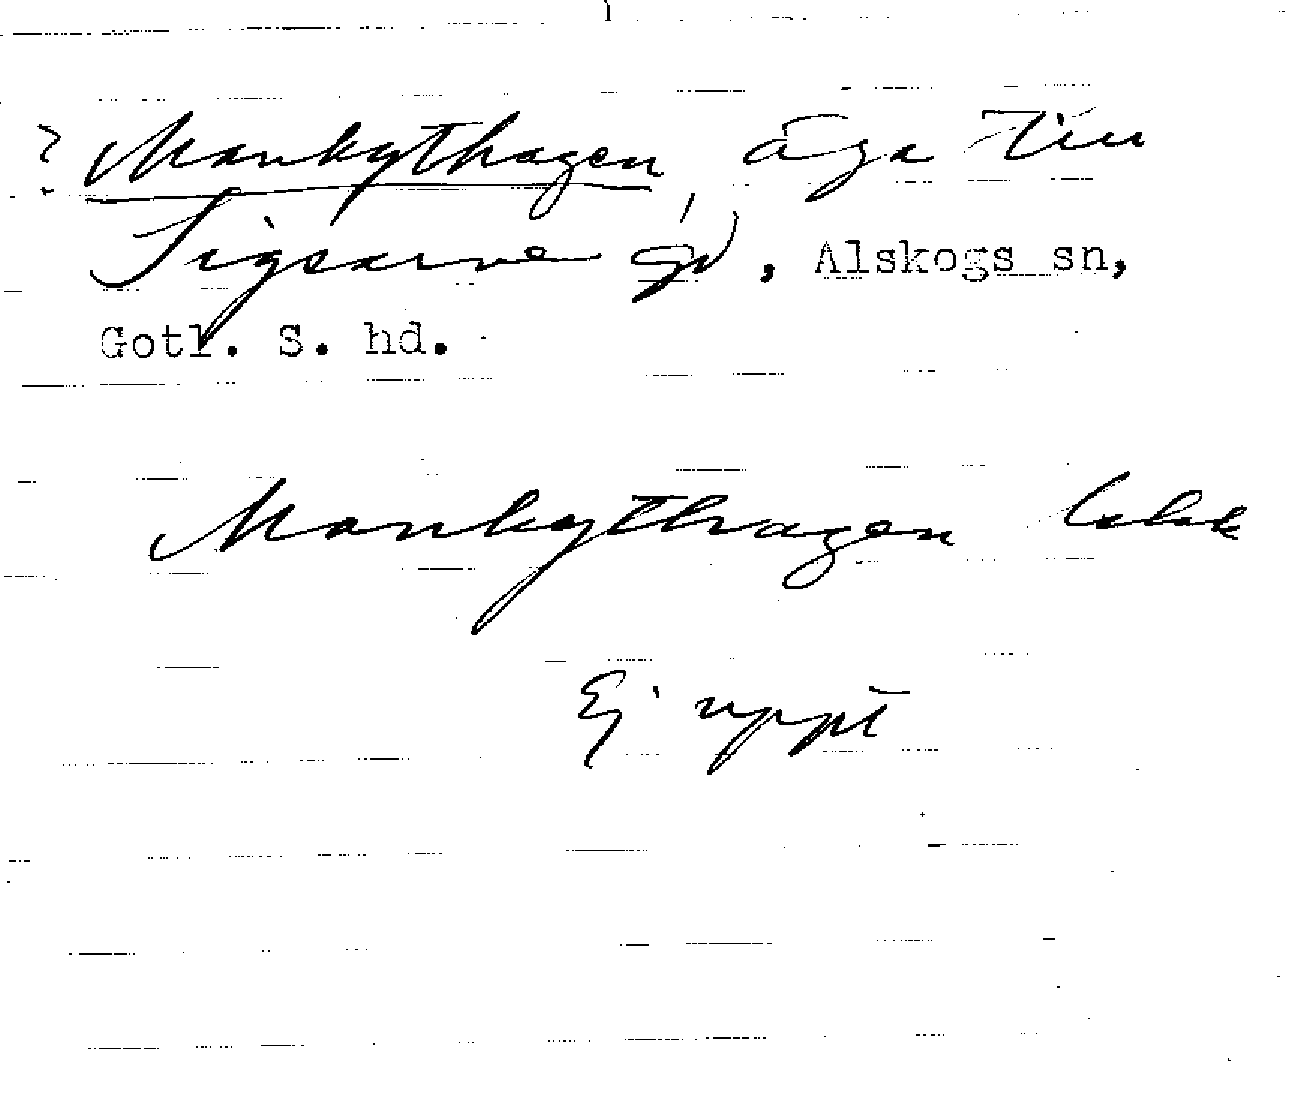 ? Mankythagen, äga till
Sigsarve gd, Alskogs sn,
Gotl. S. hd.
Mankythagen
Ej uppt